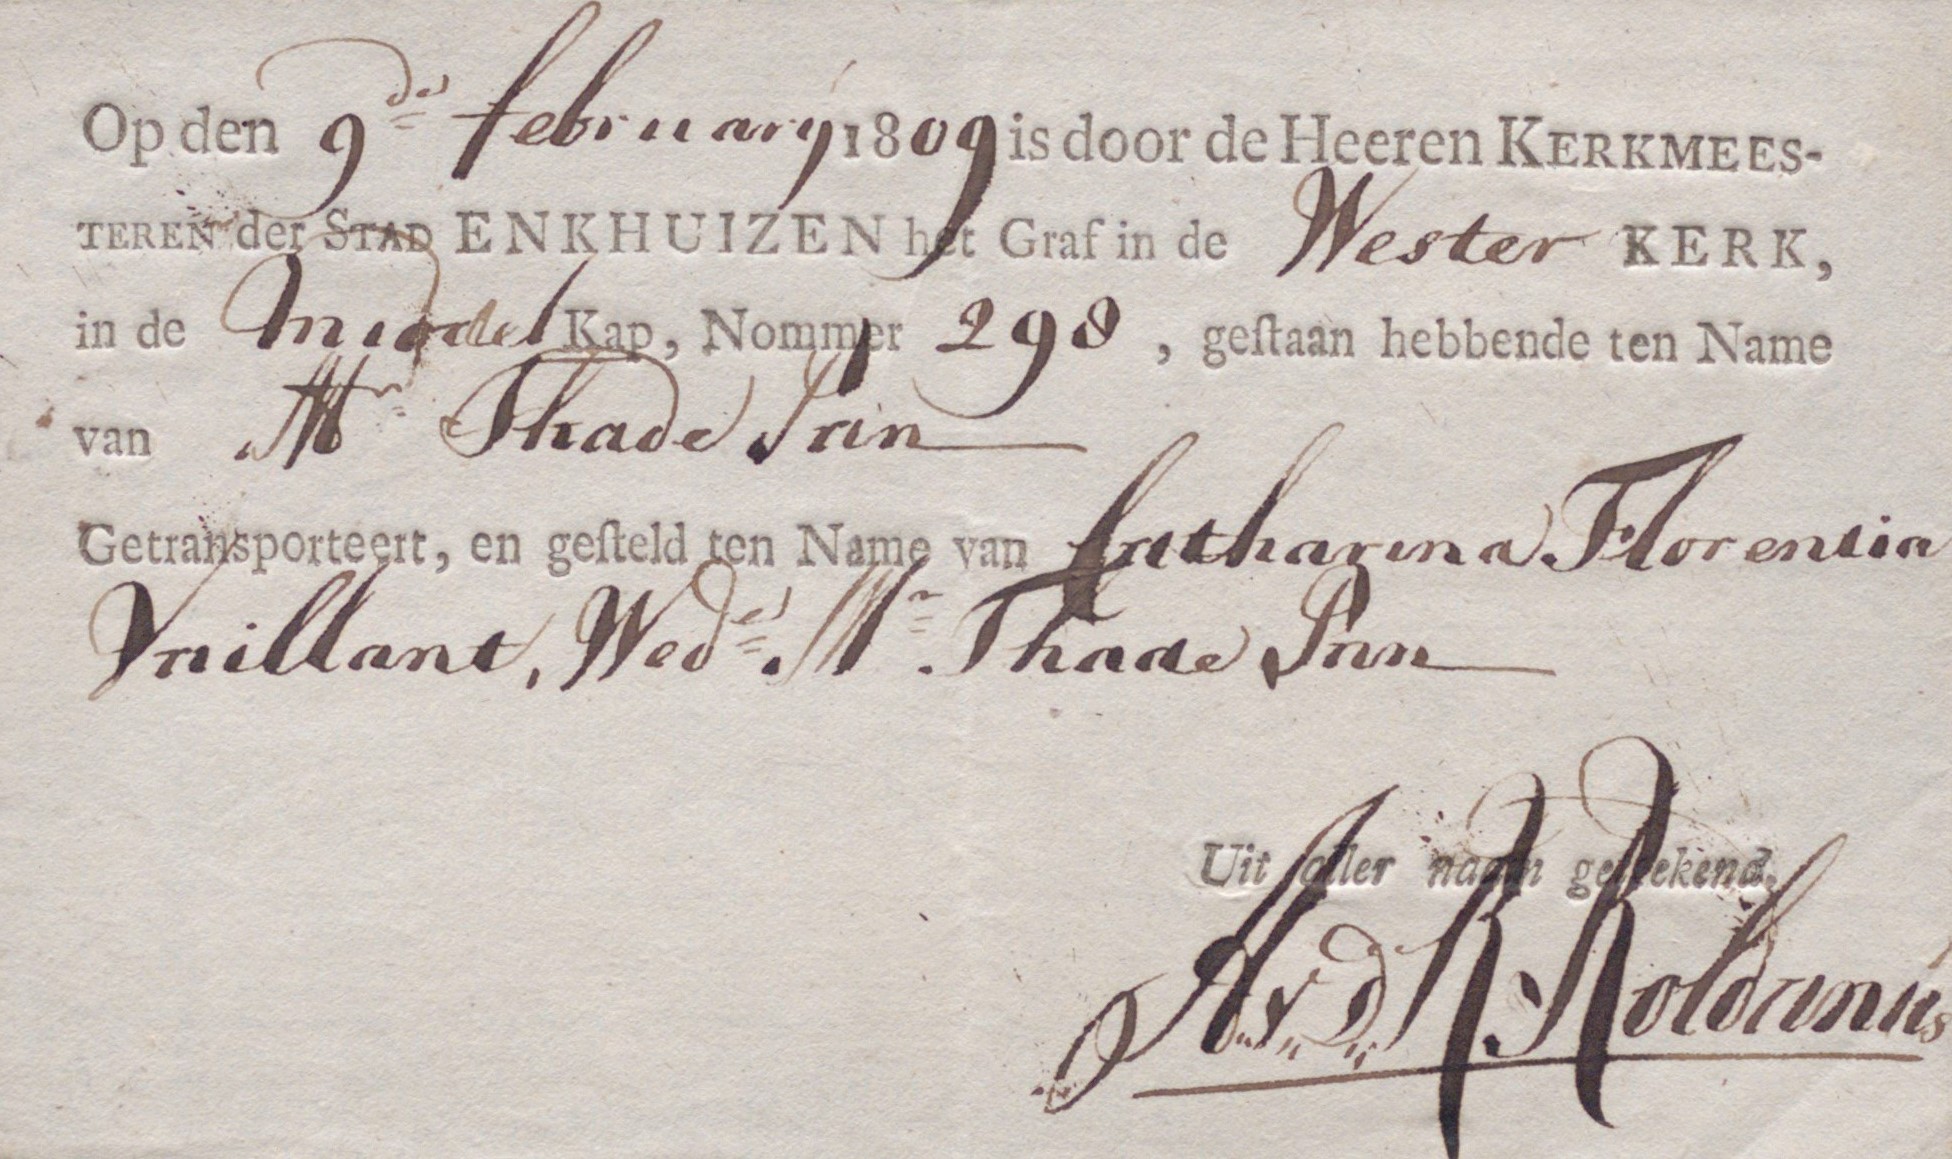 Op den 9de february 1809 is door de Heeren KERKMEES-
TEREN der STAD ENKHUIZEN het Graf in de Wester KERK,
in de Middel Kap, Nommer 298, geſtaan hebbende ten Name
van Mr Thade Pan
Getransporteert, en geſteld ten Name van Catharina Florentia
Vaillant, Wede Mr Thade Pan
Uit aller naam geteekend.
Roldanus